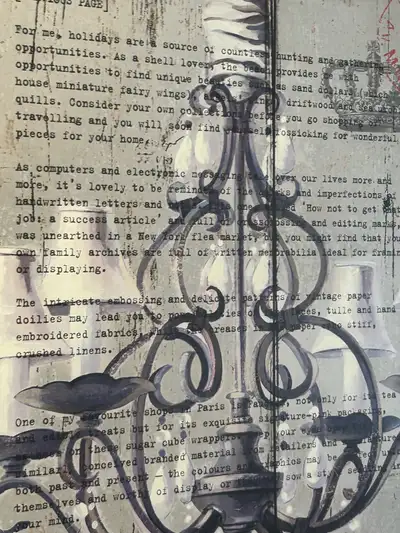 PAGE]
For me, holidays are a source of countless hunting and gathering
opportunities. As a shell lover, the beach provides me with
opportunities to find unique beauties such as sand dollars (which
house miniature fairy wings), driftwood and
quills. Consider your own before you go shopping or
travelling and you will soon find yourself fossicking for wonderful
pieces for your home.
As computers and electronic messaging take over our lives more and
more, it's lovely to be reminded of the quirks and imperfections
handwritten letters and one 'How not to get that
job: a success article' and full of and editing marks
was unearthed in a New York flea market but you might find that your
own family archives are full of written memorabilia ideal for framing
or displaying.
The intricate embossing and delicate patterns of vintage paper
doilies may lead you to laces, tulle and hand
embroidered fabrics, while creases in paper stiff,
crushed linens.
One of my favourite shops in Paris is not only for its tea
and but for its exquisite signature-pink packaging,
these sugar cube wrappers.
similarly conceived branded material from and
both past and present the colours and graphics may be
themselves and worthy of display or sow a style seedling in
your mind.